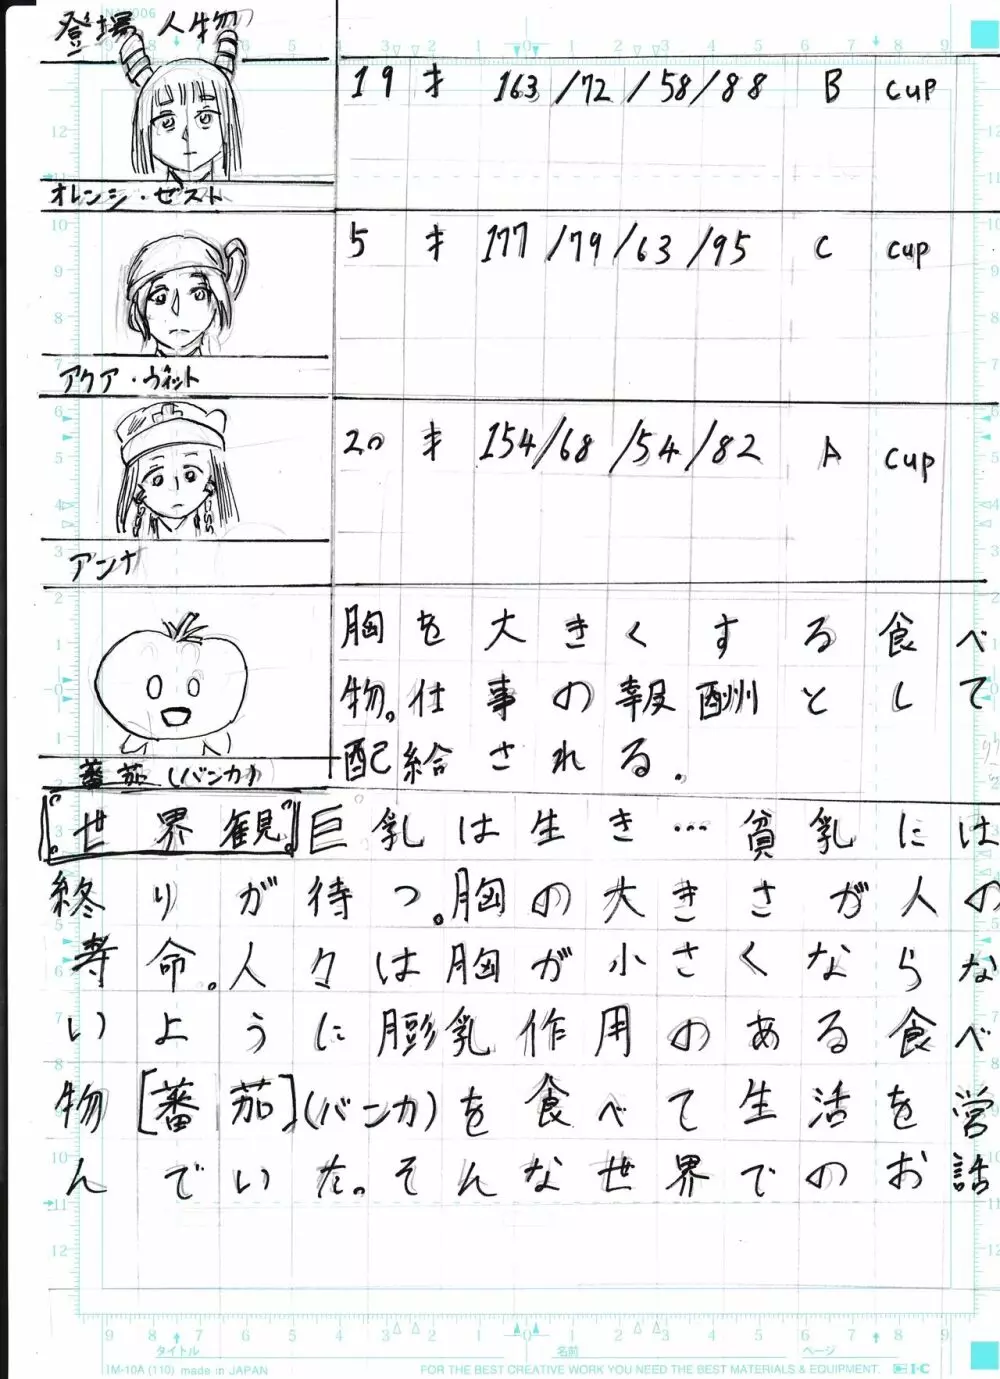 登場人物
19才 163/72/58/88 B cup
オレンジ・ゼスト
5才 177/79/63/95 C cup
アクア・ヴィット
20才 154/68/54/82 A cup
アンナ
胸を大きくする食べ
物。仕事の報酬として
配給される.
蕃茄(バンカ)
『世界観』巨乳は生き…貧乳には
終りが待つ。胸の大きさが人の
寿命。人々は胸が小さくならな
いように膨乳作用のある食べ
物[蕃茄](バンカ)を食べて生活を営
んでいた。そんな世界でのお話
タイトル 名前 ページ
IM-10A (110) made in JAPAN FOR THE BEST CREATIVE WORK YOU NEED THE BEST MATERIALS & EQUIPMENT. I·C